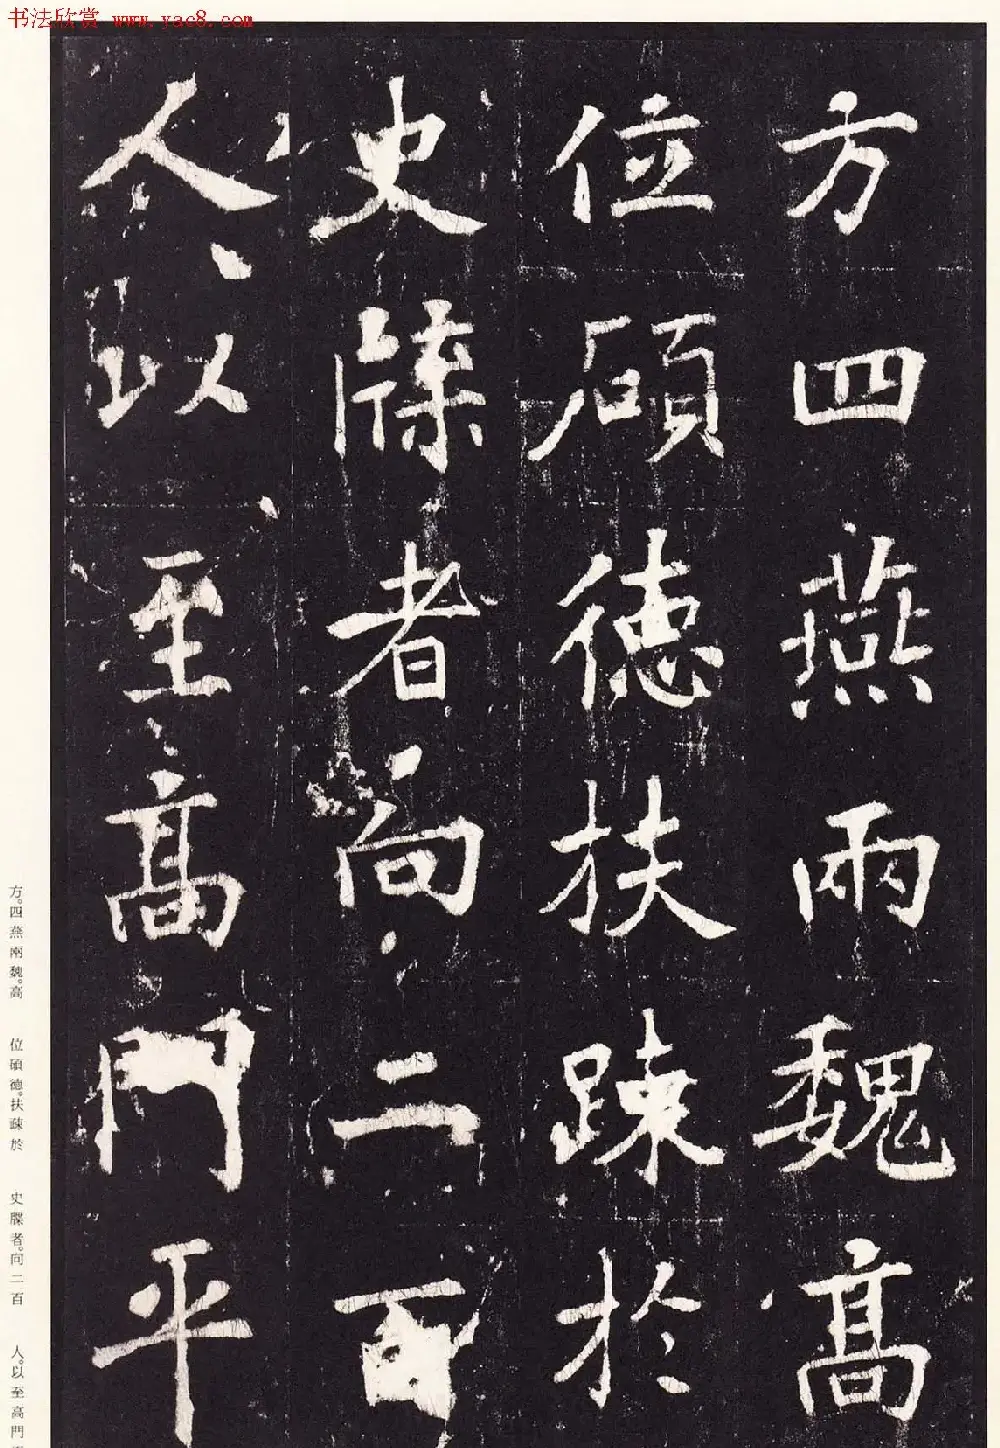 书法欣赏 www.yac8.com
方四燕兩魏高
位碩德扶踈於
史牒者向二百
人以至高門平
方。四燕兩魏。高 位碩德。扶疎於 史牒者。向二百 人。以至高門